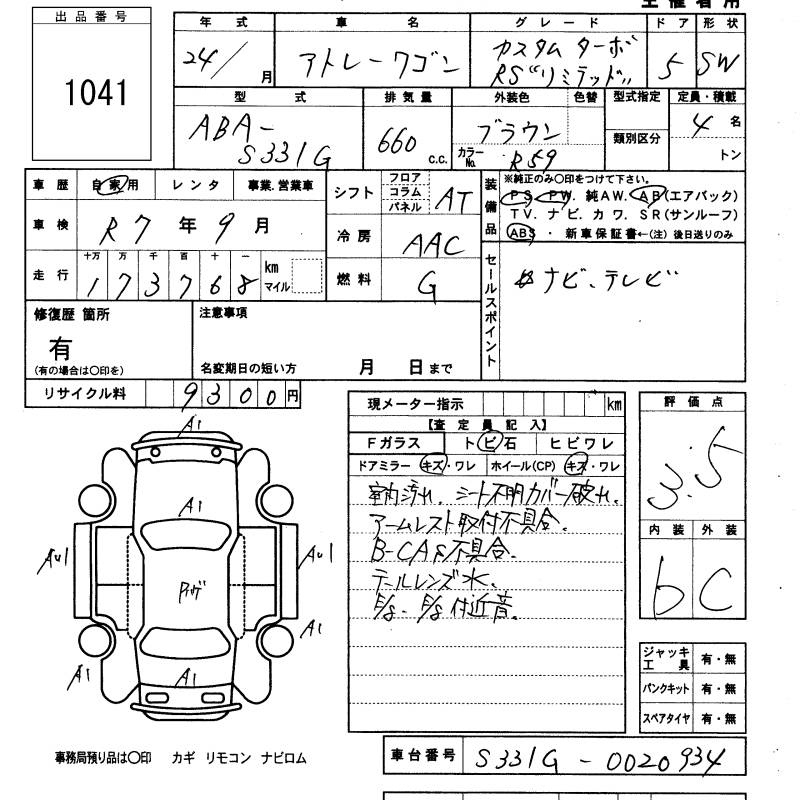 出品番号
1041
年式 車名 グレード ドア 形状
24/ 月 アトレーワゴン カスタム ターボ RS"リミテッド" 5 SW
型式 排気量 外装色 色替 型式指定 定員・積載
ABA-S331G 660 C.C. ブラウン カラーNo. R59 類別区分 4 名 トン
車歴 自家用 レンタ 事業.営業車
車検 R7 年 9 月
走行 十万 万 千 百 十 一
173768 km マイル
シフト フロア コラム パネル AT
冷房 AAC
燃料 G
装備品 ※純正のみ〇印をつけて下さい。
PS. PW. 純AW. AB(エアバック)
TV. ナビ. カワ. SR(サンルーフ)
ABS ・ 新車保証書←(注) 後日送りのみ
セールスポイント
ナビ、テレビ
修復歴 箇所
有
(有の場合は〇印を)
注意事項
名変期日の短い方 月 日まで
リサイクル料 9300円
現メーター指示 km
【査定員記入】
Fガラス トビ石 ヒビワレ
ドアミラー キズ・ワレ ホイール(CP) キズ・ワレ
室内汚れ. シート不明カバー破れ.
アームレスト取付不具合.
不具合.
テールレンズ水.
付近音.
評価点
3.5
内装 外装
b C
ジャッキ工具 有・無
パンクキット 有・無
スペアタイヤ 有・無
A1
A1
A1
A1
A1
A1
事務局預り品は〇印 カギ リモコン ナビロム
車台番号 S331G-0020934